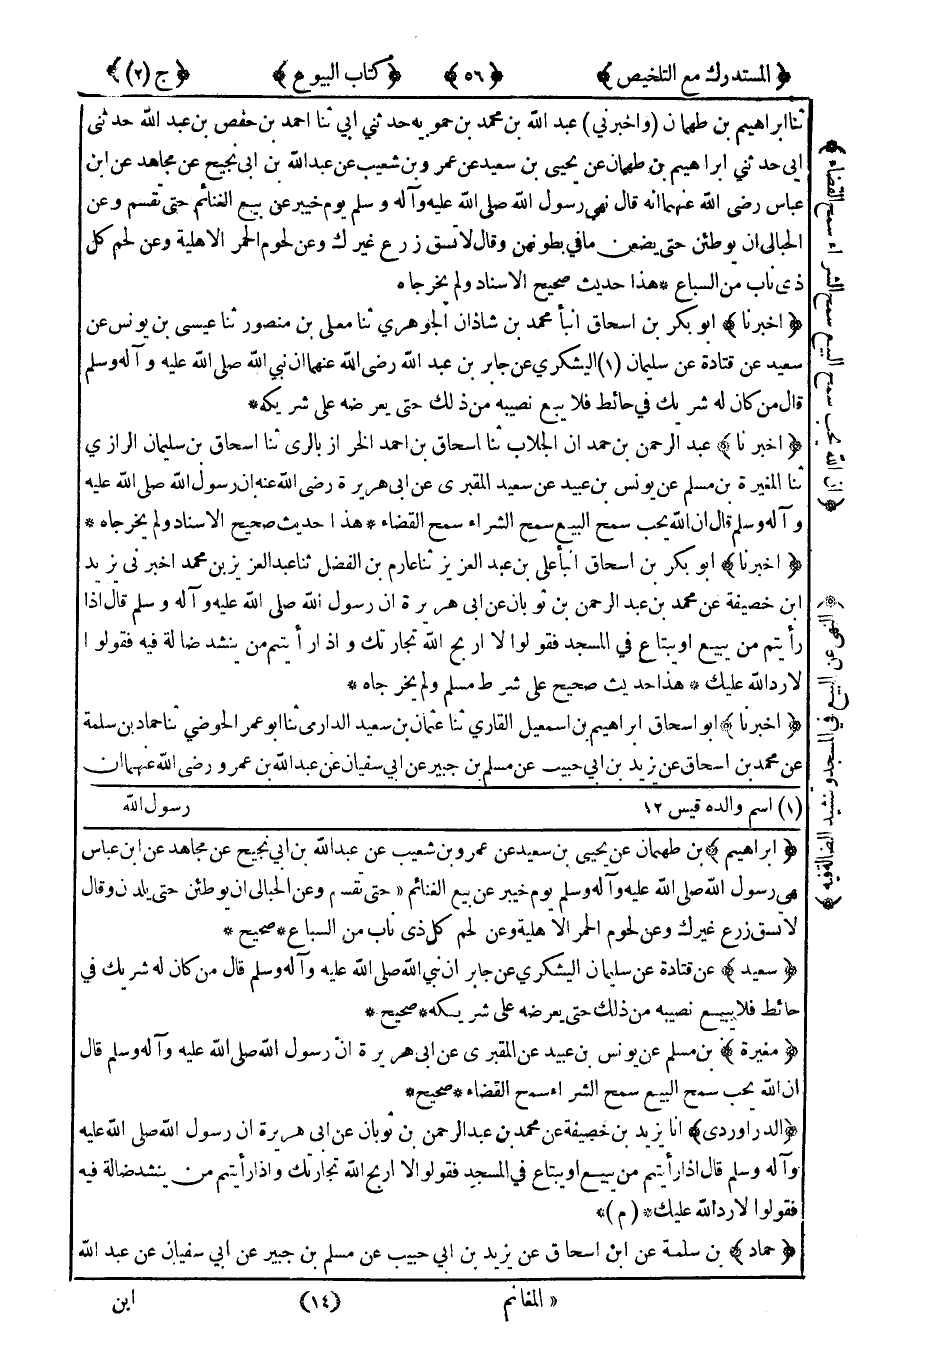 ﴿ المستدرك مع التلخيص ﴾ ﴿ ٥٦ ﴾ ﴿ كتاب البيوع ﴾ ﴿ ج (٢) ﴾
ثنا ابراهيم بن طهمان (واخبرني) عبد الله بن محمد بن حمويه حدثني ابي ثنا احمد بن حفص بن عبد الله حدثني
ابي حدثني ابراهيم بن طهمان عن يحيى بن سعيد عن عمرو بن شعيب عن عبد الله بن ابى نجيح عن مجاهد عن ابن
عباس رضى الله عنهما انه قال نهى رسول الله صلى الله عليه وآله وسلم يوم خيبر عن بيع الغنائم حتى تقسم وعن
الحبالى ان يوطئن حتى يضعن مافي بطونهن وقال لا تسق زرع غيرك وعن لحوم الحمر الاهلية وعن لحم كل
ذى ناب من السباع * هذا حديث صحيح الاسناد ولم يخرجاه
﴿ اخبرنا ﴾ ابو بكر بن اسحاق انبأ محمد بن شاذان الجوهري ثنا معلى بن منصور ثنا عيسى بن يونس عن
سعيد عن قتادة عن سليمان (١) اليشكري عن جابر بن عبد الله رضى الله عنهما ان نبي الله صلى الله عليه وآله وسلم
قال من كان له شريك في حائط فلا يبع نصيبه من ذلك حتى يعرضه على شريكه *
﴿ اخبرنا ﴾ عبد الرحمن بن حمدان الجلاب ثنا اسحاق بن احمد الخراز بالرى ثنا اسحاق بن سليمان الرازي
ثنا المغيرة بن مسلم عن يونس بن عبيد عن سعيد المقبرى عن ابى هريرة رضى الله عنه ان رسول الله صلى الله عليه
وآله وسلم قال ان الله يحب سمح البيع سمح الشراء سمح القضاء * هذا حديث صحيح الاسناد ولم يخرجاه *
﴿ اخبرنا ﴾ ابو بكر بن اسحاق انبأ على بن عبد العزيز ثنا عارم بن الفضل ثنا عبد العزيز بن محمد اخبرنى يزيد
ابن خصيفة عن محمد بن عبد الرحمن بن ثوبان عن ابى هريرة ان رسول الله صلى الله عليه وآله وسلم قال اذا
رأيتم من يبيع او يبتاع في المسجد فقولوا لا اربح الله تجارتك واذا رأيتم من ينشد ضالة فيه فقولوا
لا رد الله عليك * هذا حديث صحيح على شرط مسلم ولم يخرجاه *
﴿ اخبرنا ﴾ ابو اسحاق ابراهيم بن اسمعيل القاري ثنا عثمان بن سعيد الدارمى ثنا ابو عمر الحوضي ثنا حماد بن سلمة
عن محمد بن اسحاق عن يزيد بن ابي حبيب عن مسلم بن جبير عن ابي سفيان عن عبد الله بن عمرو رضى الله عنهما ان
(١) اسم والده قيس ١٢ رسول الله
﴿ ابراهيم ﴾ بن طهمان عن يحيى بن سعيد عن عمرو بن شعيب عن عبد الله بن ابي نجيح عن مجاهد عن ابن عباس
نهى رسول الله صلى الله عليه وآله وسلم يوم خيبر عن بيع الغنائم « حتى تقسم وعن الحبالى ان يوطئن حتى يلدن وقال
لا تسق زرع غيرك وعن لحوم الحمر الاهلية وعن لحم كل ذى ناب من السباع * صحيح *
﴿ سعيد ﴾ عن قتادة عن سليمان اليشكري عن جابر ان نبي الله صلى الله عليه وآله وسلم قال من كان له شريك في
حائط فلا يبيع نصيبه من ذلك حتى يعرضه على شريكه * صحيح *
﴿ مغيرة ﴾ بن مسلم عن يونس بن عبيد عن المقبرى عن ابى هريرة ان رسول الله صلى الله عليه وآله وسلم قال
ان الله يحب سمح البيع سمح الشراء سمح القضاء * صحيح *
﴿ الدراوردى ﴾ انا يزيد بن خصيفة عن محمد بن عبد الرحمن بن ثوبان عن ابى هريرة ان رسول الله صلى الله عليه
وآله وسلم قال اذا رأيتم من يبيع او يبتاع في المسجد فقولوا لا اربح الله تجارتك واذا رأيتم من ينشد ضالة فيه
فقولوا لا رد الله عليك * (م) *
﴿ حماد ﴾ بن سلمة عن ابن اسحاق عن يزيد بن ابي حبيب عن مسلم بن جبير عن أبي سفيان عن عبد الله
« المغانم (١٤) ابن
﴿ ان الله يحب سمح البيع سمح الشراء سمح القضاء ﴾
﴿ النهى عن البيع في المسجد ونشيد الضالة فيه ﴾